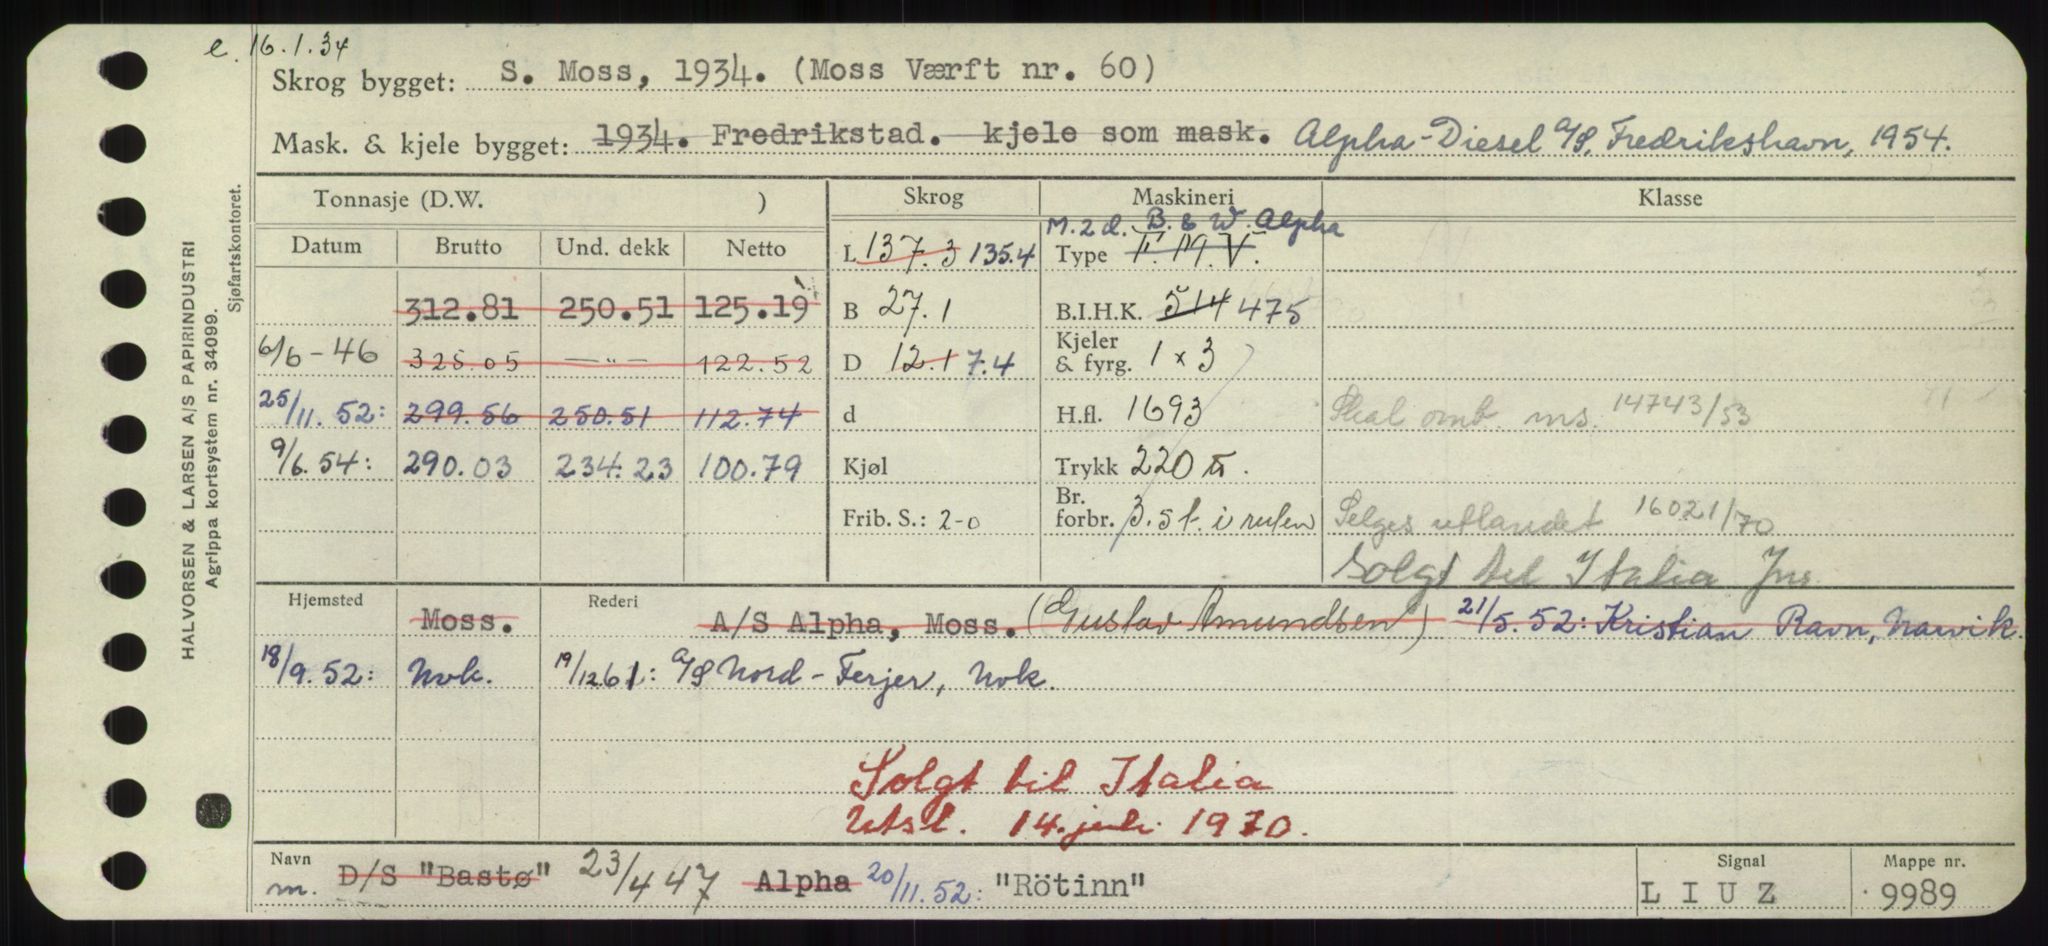 e. 16.1.34
Skrog bygget: S. Moss, 1934. (Moss Værft nr. 60)
Mask. & kjele bygget: 1934. Fredrikstad. kjele som mask. Alpha-Diesel A/S, Fredrikshavn, 1954.
Tonnasje (D.W. ) Skrog Maskineri Klasse
M. 2 d. B. & W. Alpha
Datum Brutto Und. dekk Netto L 137.3 135.4 Type F.M.V.
312.81 250.51 125.19 B 27.1 B.I.H.K. 514 475
6/6-46 325.05 —"— 122.52 D 12.1 7.4 Kjeler & fyrg. 1 x 3
25/11.52: 299.56 250.51 112.74 d H.fl. 1693 Skal omb. ms. 14743/53
9/6.54: 290.03 234.23 100.79 Kjøl Trykk 220
Frib. S.: 2-0 Br. forbr. 3.5 t. i ruten Selges utlandet 16021/70
Solgt til Italia
Hjemsted Moss. Rederi A/S Alpha, Moss. (Gustav Amundsen) 21/5.52: Kristian Ravn, Narvik.
18/9.52: Nvk. 19/12 61: A/S Nord-Ferjer, Nvk.
Solgt til Italia
Utsl. 14. juli 1970.
Navn m. D/S "Bastø" 23/4 47 Alpha 20/11.52: "Rötinn" Signal LIUZ Mappe nr. 9989
HALVORSEN & LARSEN A/S PAPIRINDUSTRI
Agrippa kortsystem nr. 34099.
Sjøfartskontoret.